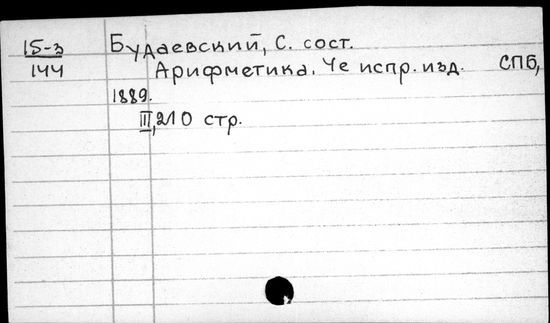 15-3 Будаевский, С. сост.
144 Арифметика. 4е испр. изд. СПб,
1889.
III, 210 стр.